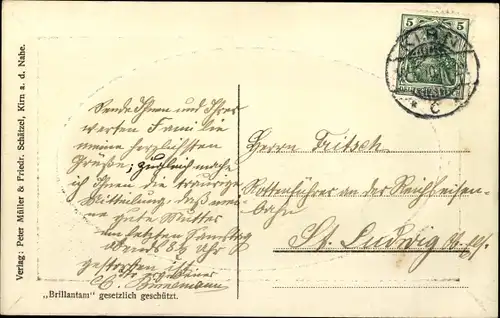 Verlag: Peter Müller & Friedr. Schätzel, Kirn a. d. Nahe.
5 5
KIRN
* C
Sende Ihnen und Ihrer
werten Familie
meine herzlichsten
Grüße; zugleich mache
ich Ihnen die traurige
Mitteilung daß mei-
ne gute Mutter
am letzten Samstag
Abend 8½ Uhr
gestorben ist.
Ihr ergebener
Herrn Fritsch
Rottenführer an der Reichseisen-
bahn
St. Ludwig
„Brillantam" gesetzlich geschützt.